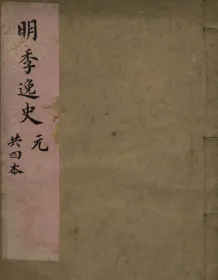 明季逸史
元
共四本